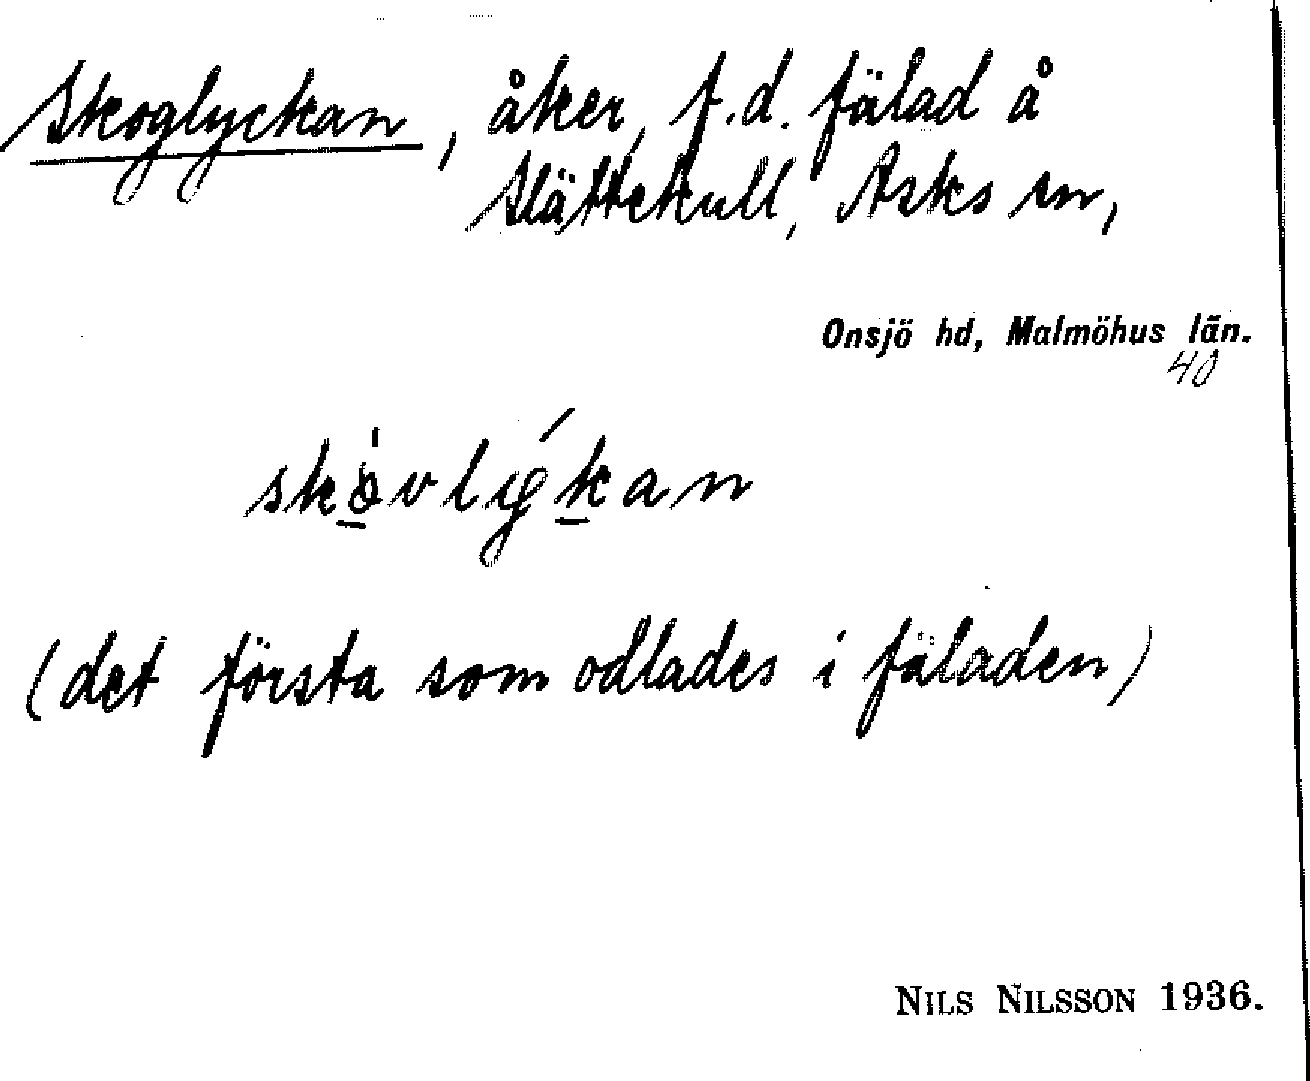 Skoglyckan, åker, f.d. fälad å
Slättekull, Asks sn,
Onsjö hd, Malmöhus län.
40
(det första som odlades i fäladen)
NILS NILSSON 1936.